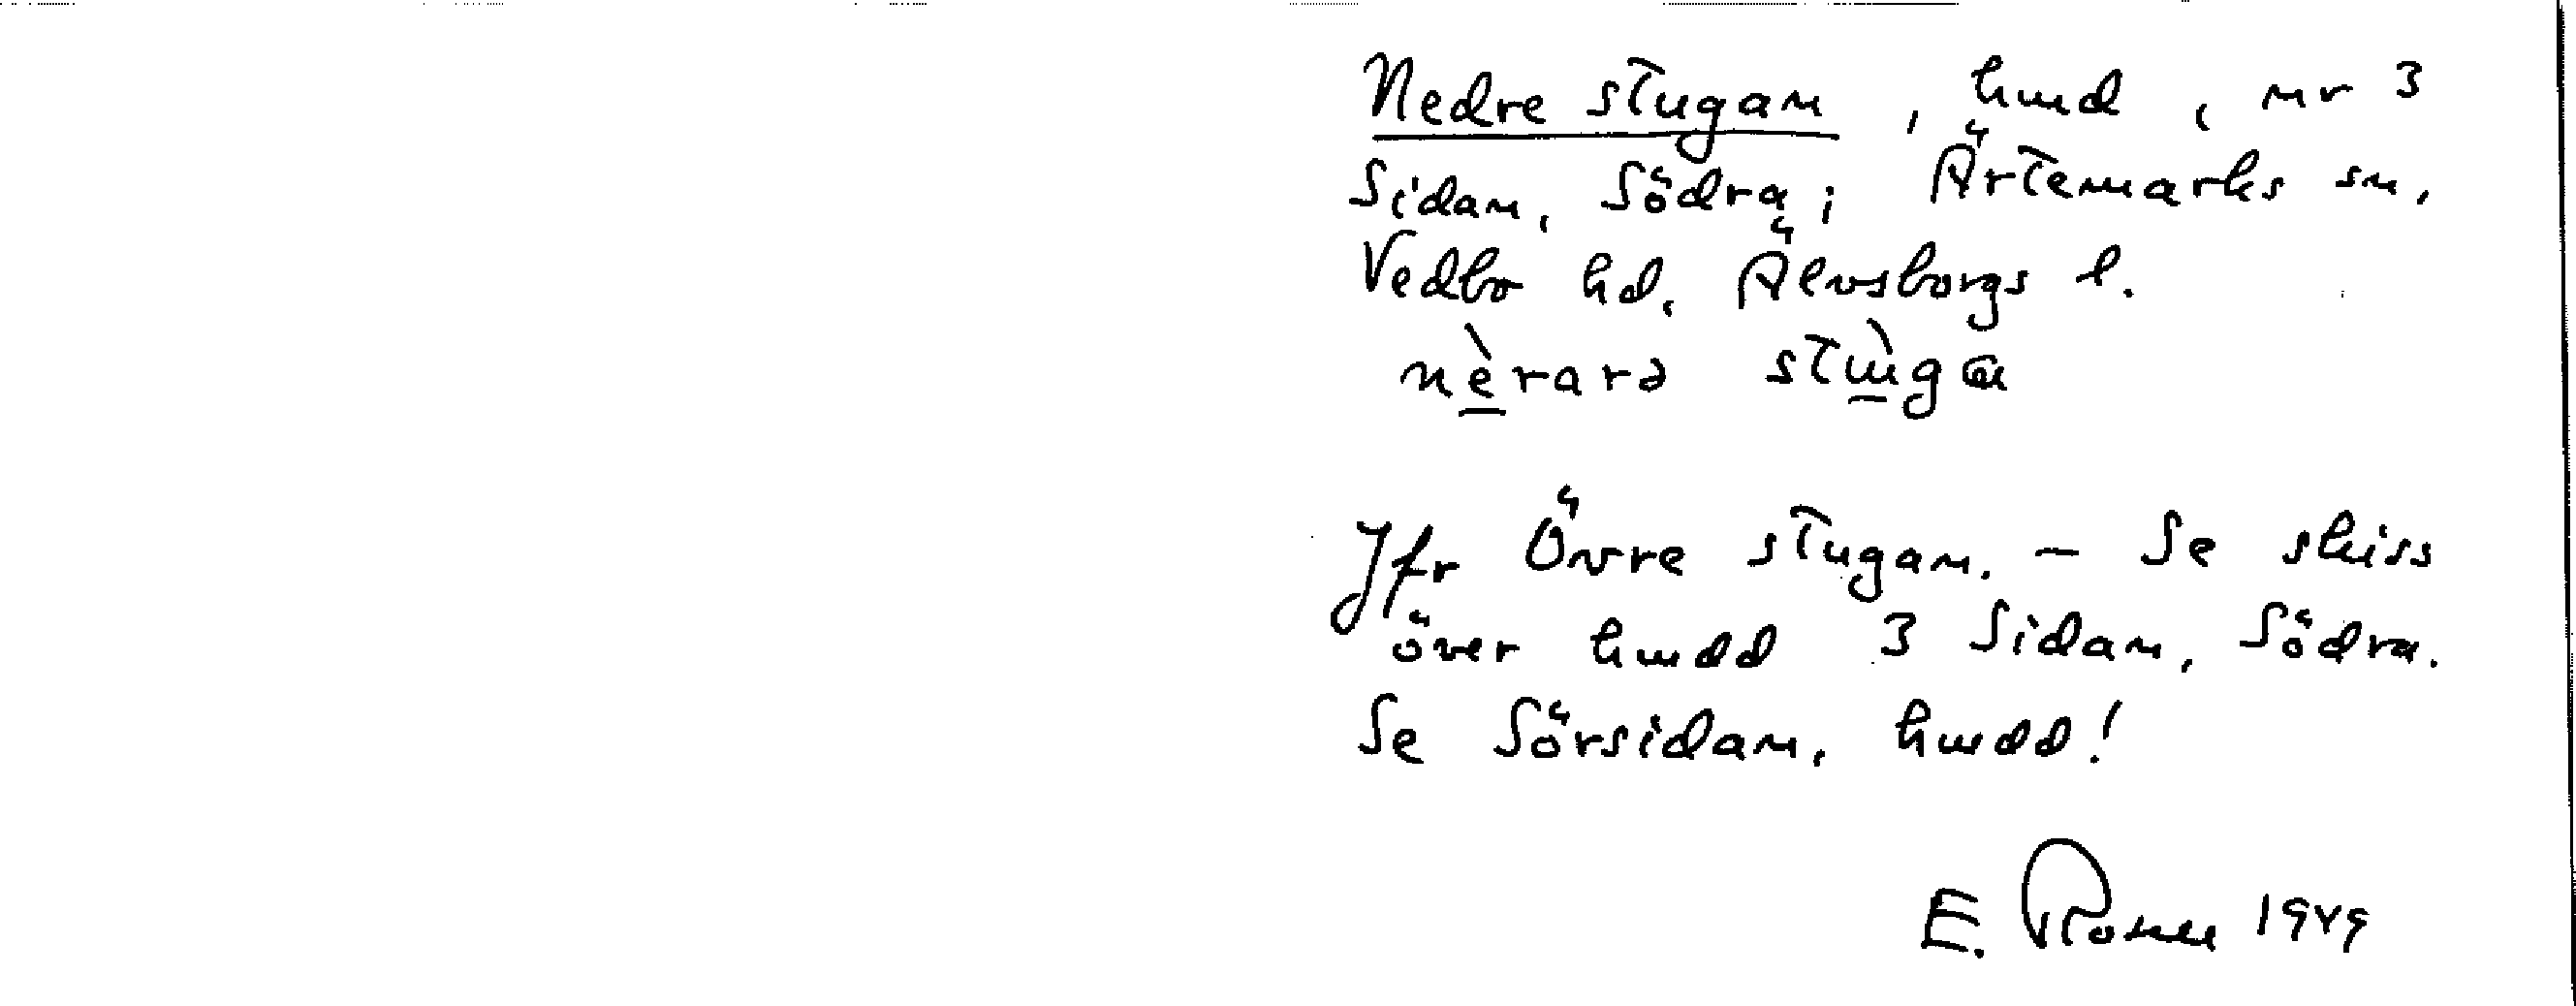 Nedre stugan, hmd, nr 3
Sidan, Södra; Ärtemarks sn,
Vedbo hd, Älvsborgs l.
nèrarə stùga
Jfr Övre stugan. — Se skiss
över hmdd 3 Sidan, Södra.
Se Sörsidan, hmdd!
E. 1949